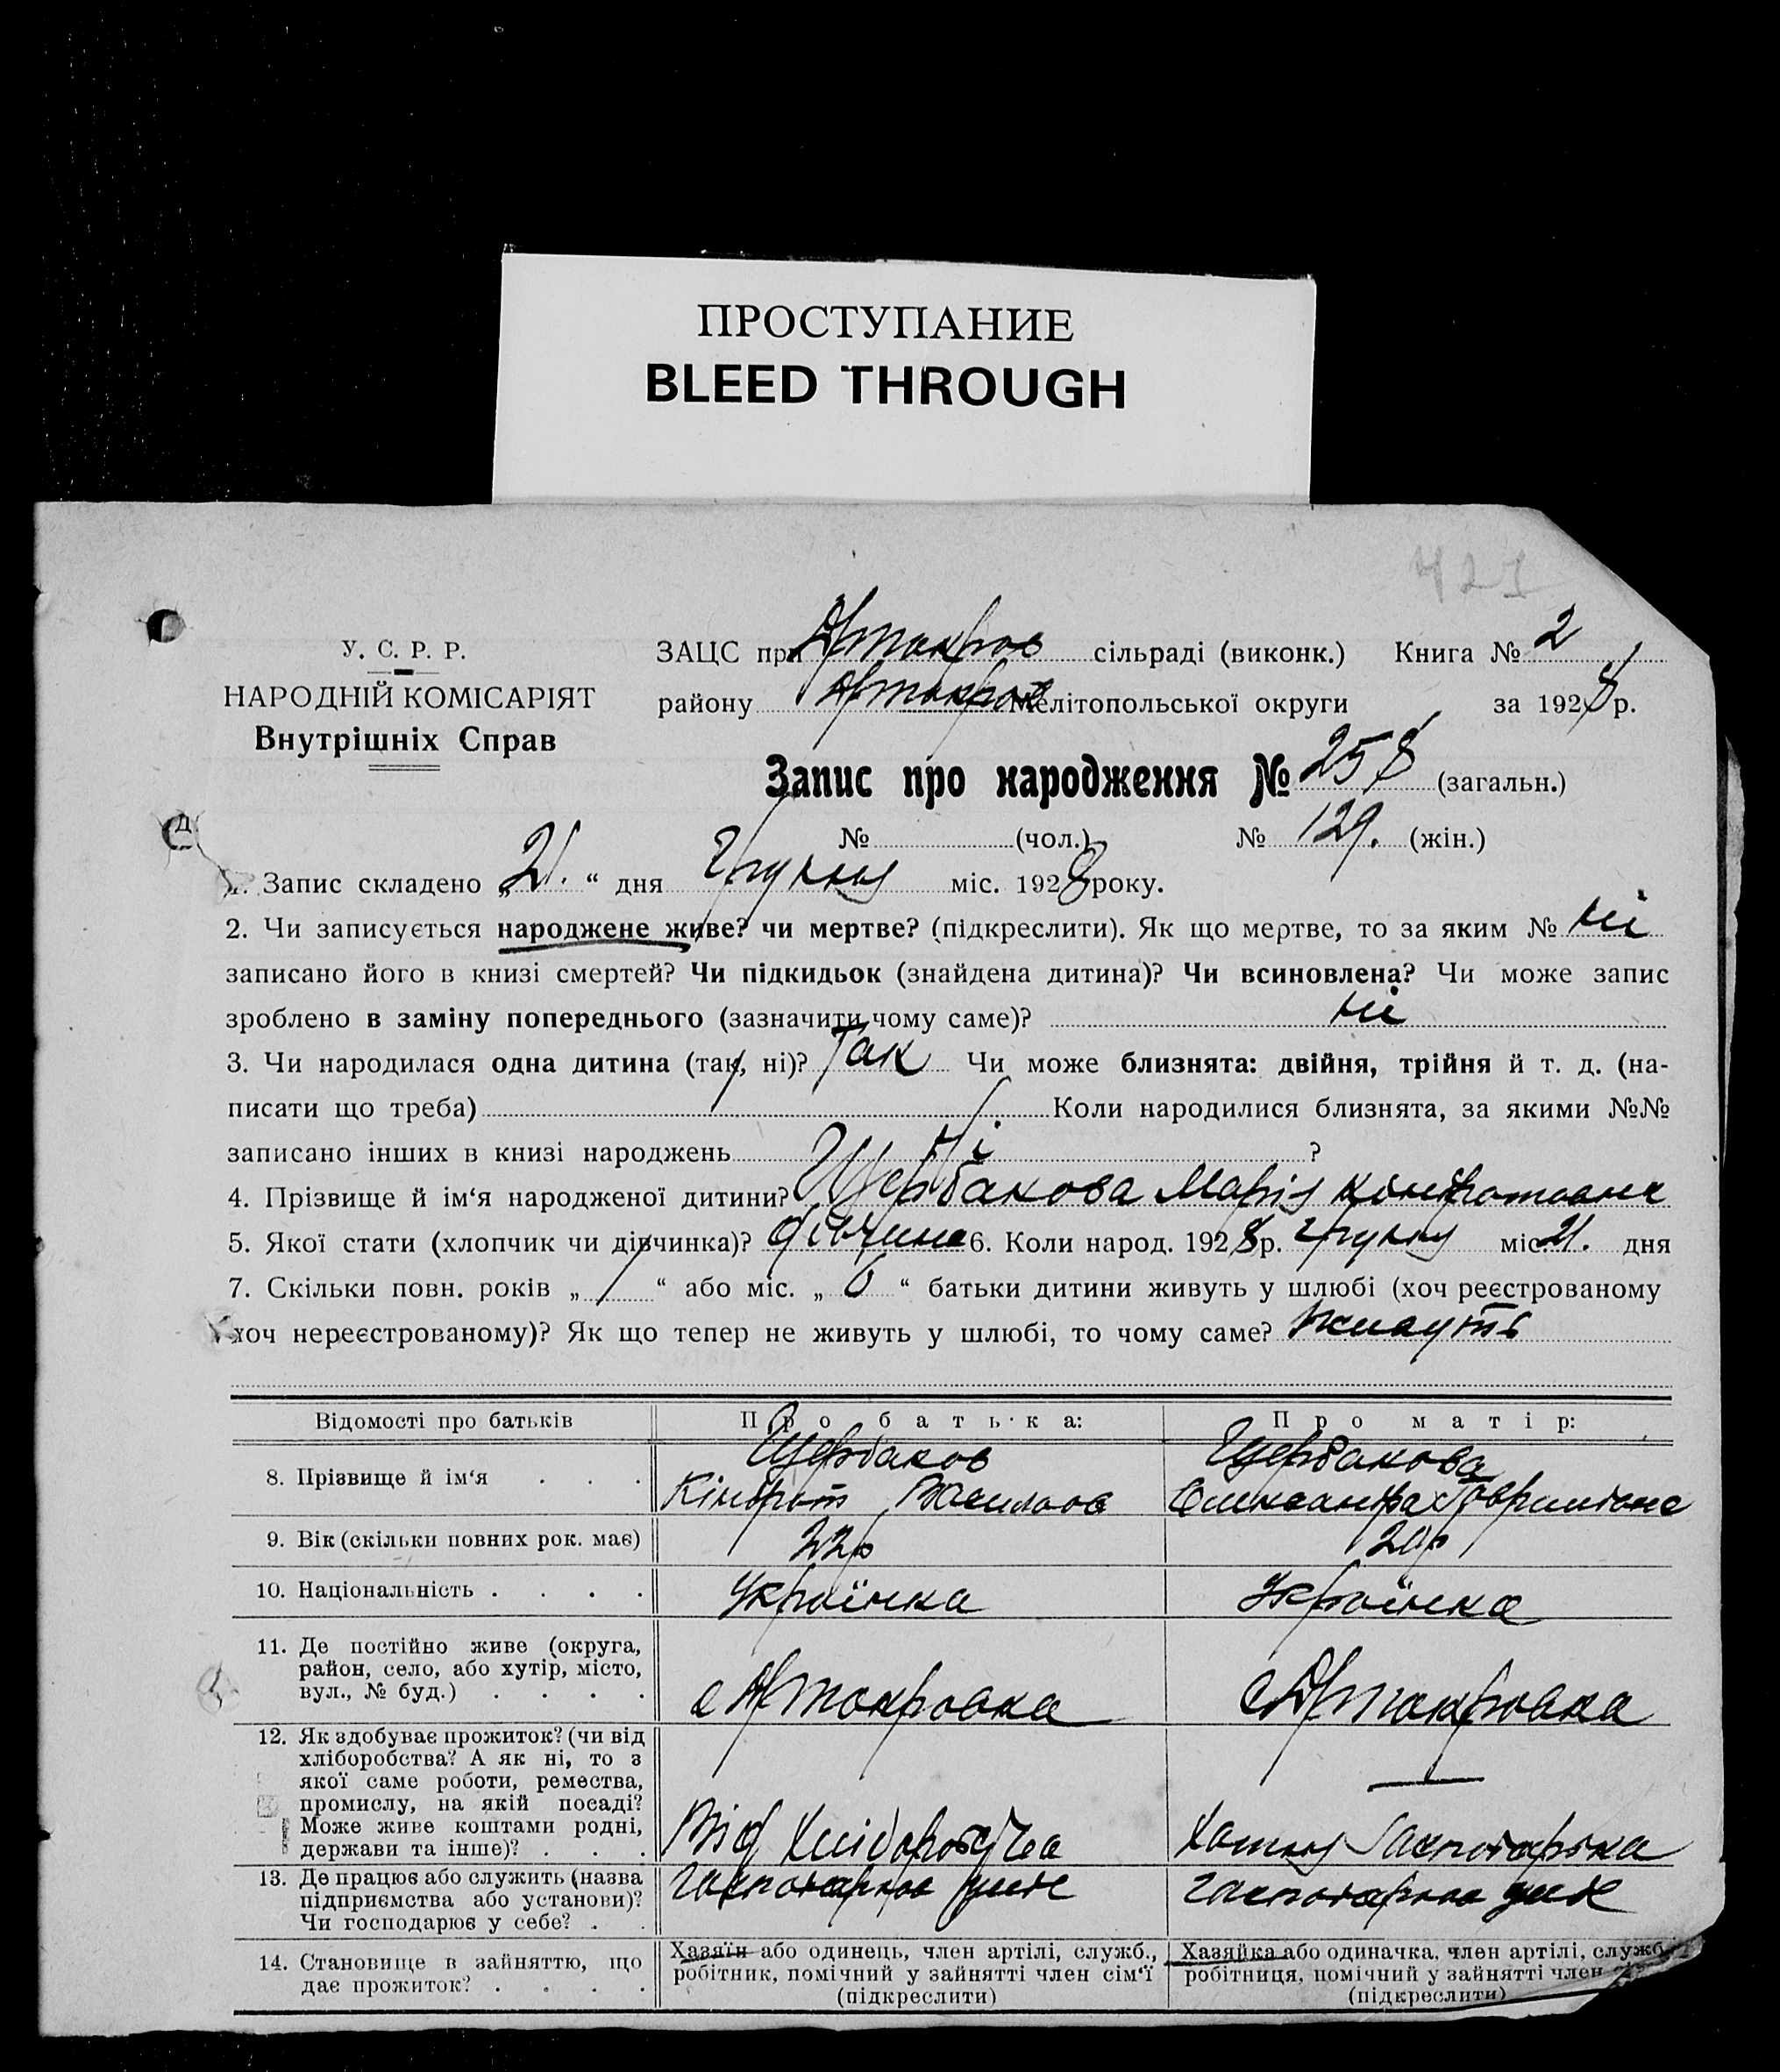 ПРОСТУПАНИЕ
BLEED THROUGH
421
У. С. Р. Р.
НАРОДНІЙ КОМІСАРІЯТ
Внутрішніх Справ
ЗАЦС при сільраді (виконк.) Книга № 2
району Мелітопольської округи за 1928 р.
Запис про народження № 258 (загальн.)
№ (чол.) № 129. (жін.)
1. Запис складено „21.“ дня Грудня міс. 1928 року.
2. Чи записується народжене живе? чи мертве? (підкреслити). Як що мертве, то за яким № ні
записано його в книзі смертей? Чи підкидьок (знайдена дитина)? Чи всиновлена? Чи може запис
зроблено в заміну попереднього (зазначити чому саме)? ні
3. Чи народилася одна дитина (так, ні)? Так Чи може близнята: двійня, трійня й т. д. (на-
писати що треба) Коли народилися близнята, за якими №№
записано інших в книзі народжень Ні ?
4. Прізвище й ім‘я народженої дитини? Щербакова Марія Кіндратовна
5. Якої стати (хлопчик чи дівчинка)? дівчина 6. Коли народ. 1928 р. грудня міс. 21. дня
7. Скільки повн. років „ “ або міс. „ 6 “ батьки дитини живуть у шлюбі (хоч реєстрованому
хоч нереєстрованому)? Як що тепер не живуть у шлюбі, то чому саме? живуть
Відомості про батьків Про батька: Про матір:
8. Прізвище й ім‘я . . . Щербаков Кіндрат Васильов Щербакова Олександра Гавриловна
9. Вік (скільки повних рок. має) 22р 20р
10. Національність . . . . Українка Українка
11. Де постійно живе (округа,
район, село, або хутір, місто,
вул., № буд.) . . . .
12. Як здобуває прожиток? (чи від
хліборобства? А як ні, то з
якої саме роботи, ремества,
промислу, на якій посаді?
Може живе коштами родні,
держави та інше)? . . . Від Хліборобства
13. Де працює або служить (назва
підприємства або установи)?
Чи господарює у себе? . .
14. Становище в зайняттю, що
дає прожиток? . . . .
Хазяїн або одинець, член артілі, служб.,
робітник, помічний у зайнятті член сім‘ї
(підкреслити)
Хазяйка або одиначка, член артілі, служб.
робітниця, помічний у зайнятті член
(підкреслити)